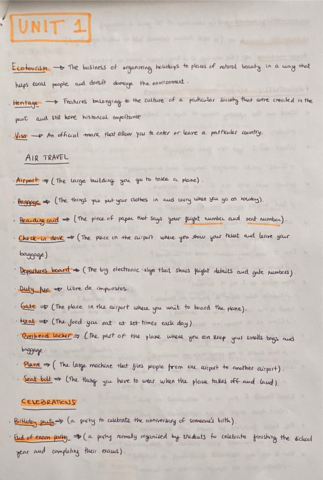 UNIT 1
Ecotourism → The business of organising holidays to places of natural beauty in a way that
helps local people and doesn't damage the environment.
Heritage → Features belonging to the culture of a particular society that were created in the
past and still have historical importance
Visa → An official mark that allow you to enter or leave a particular country.
AIR TRAVEL
Airport → (The large building you go to take a plane).
Baggage → (The things you put your clothes in and carry when you go on holiday).
· Boarding card → (The piece of paper that says your flight number and seat number).
· Check-in desk → (The place in the airport where you show your ticket and leave your
baggage)
· Departures board → (The big electronic sign that shows flight details and gate numbers)
· Duty free → Libre de impuestos.
· Gate → (The place in the airport where you wait to board the plane).
· Meal → (The food you eat at set times each day).
· Overhead locker → (The part of the plane where you can keep your smalls bags and
baggage.
· Plane → (The large machine that flies people from the airport to another airport).
· Seat belt → (The thing you have to wear when the plane takes off and land)
CELEBRATIONS
· Birthday party → (a party to celebrate the anniversary of someone's birth)
· End of exam party → (a party normally organised by students to celebrate finishing the school
year and completing their exams).